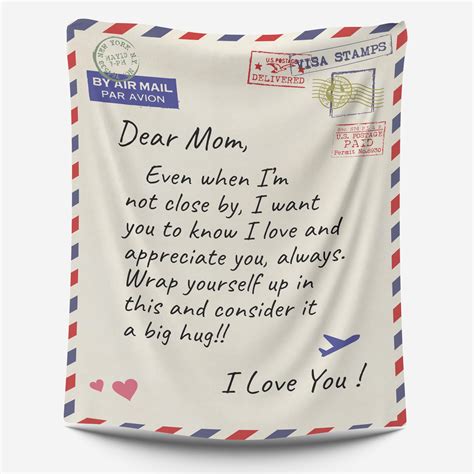 NEW YORK, N.Y.
BY AIR MAIL
PAR AVION
U.S. POSTAGE
DELIVERED
VISA STAMPS
U.S. POSTAGE
PAID
Dear Mom,
Even when I'm
not close by, I want
you to know I love and
appreciate you, always.
Wrap yourself up in
this and consider it
a big hug!!
I Love You !